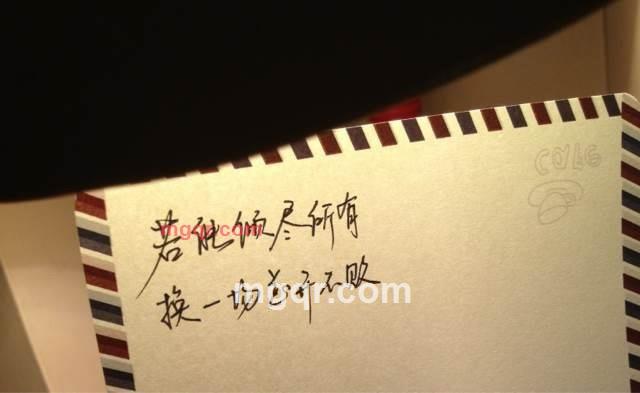 COLG
若能倾尽所有
mgqr.com
换一场花开不败
mgqr.com